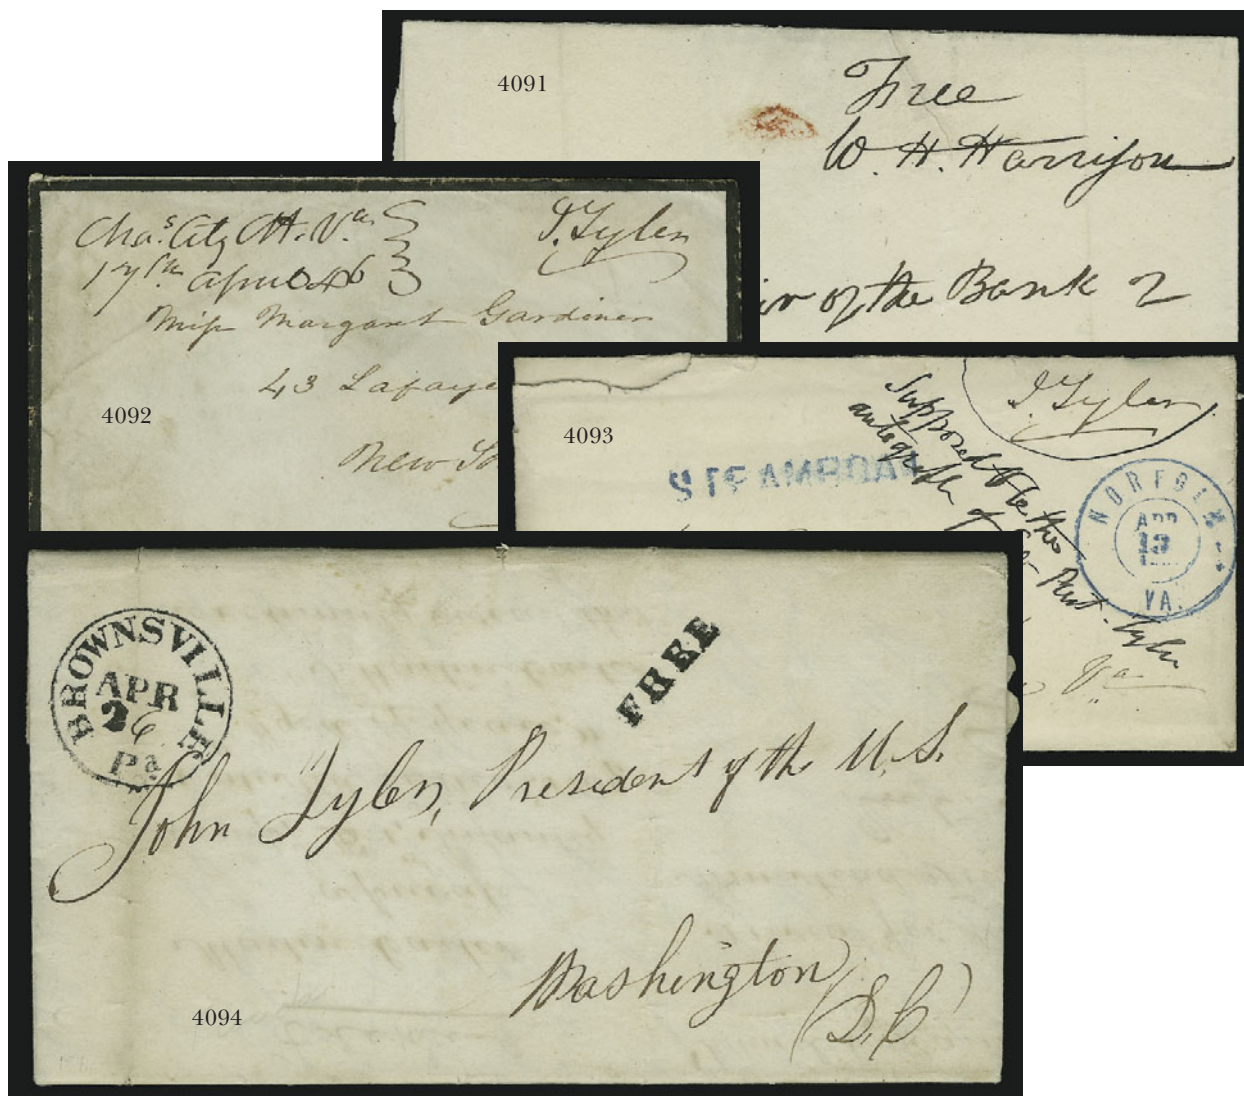 4091
Free
W. H. Harrison
of the Bank
Chas. City Ct. Va.
17th April 46
J. Tyler
Miss Margaret Gardiner
43 Lafaye
New Yo
4092
4093
J. Tyler
Supposed to be the
autograph of
Prest. Tyler
STEAMBOAT
NORFOLK
APR
13
VA.
Va
BROWNSVILLE
APR
26
Pa
FREE
John Tyler, President of the U.S.
Washington
(D.C)
4094